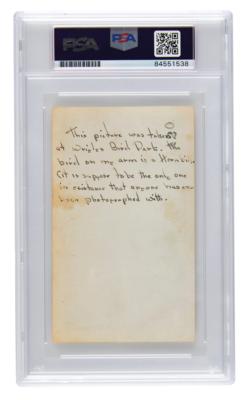 PSA
PSA
84551538
This picture was taken
at Wrigley Bird Park. The
bird on my arm is a
(it is suppose to be the only one
in existance that anyone has ever
been photographed with.